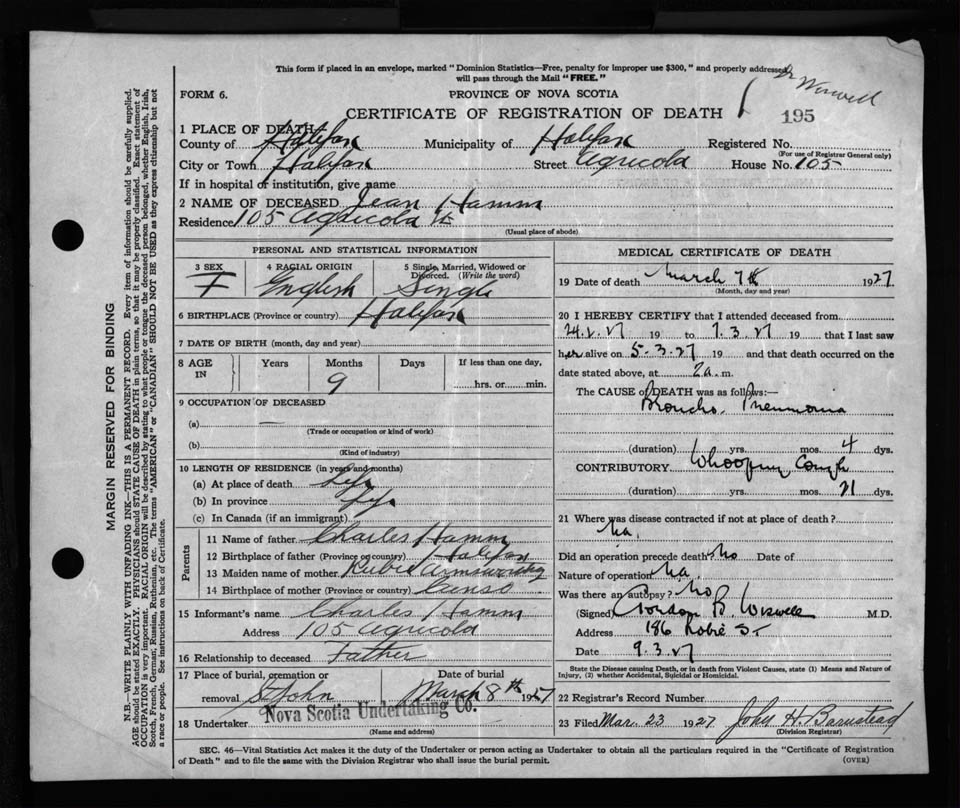 This form if placed in an envelope, marked "Dominion Statistics—Free, penalty for improper use $300," and properly addressed,
will pass through the Mail "FREE."
FORM 6.
PROVINCE OF NOVA SCOTIA
Dr Wiswell
CERTIFICATE OF REGISTRATION OF DEATH
195
1 PLACE OF DEATH
County of Halifax Municipality of Halifax Registered No.
(For use of Registrar General only)
City or Town Halifax Street Agricola House No. 105
If in hospital or institution, give name
2 NAME OF DECEASED Jean Hamm
Residence 105 Agricola St
(Usual place of abode)
PERSONAL AND STATISTICAL INFORMATION
3 SEX F
4 RACIAL ORIGIN English
5 Single, Married, Widowed or Divorced. (Write the word) Single
6 BIRTHPLACE (Province or country) Halifax
7 DATE OF BIRTH (month, day and year)
8 AGE IN Years Months Days If less than one day,
9 hrs. or min.
9 OCCUPATION OF DECEASED
(a) —
(Trade or occupation or kind of work)
(b)
(Kind of industry)
10 LENGTH OF RESIDENCE (in years and months)
(a) At place of death Life
(b) In province Life
(c) In Canada (if an immigrant)
Parents
11 Name of father Charles Hamm
12 Birthplace of father (Province or country) Halifax
13 Maiden name of mother Armsworthy
14 Birthplace of mother (Province or country) Canso
15 Informant's name Charles Hamm
Address 105 Agricola
16 Relationship to deceased Father
17 Place of burial, cremation or removal St John
Date of burial March 8th 1927
18 Undertaker Nova Scotia Undertaking Co.
(Name and address)
MEDICAL CERTIFICATE OF DEATH
19 Date of death March 7th 1927
(Month, day and year)
20 I HEREBY CERTIFY that I attended deceased from
24.2.27 19 to 7.3.27 19 that I last saw
her alive on 5-3-27 19 and that death occurred on the
date stated above, at 2a. m.
The CAUSE of DEATH was as follows:—
Broncho Pneumonia
(duration) yrs. mos. 4 dys.
CONTRIBUTORY Whooping Cough
(duration) yrs. mos. 21 dys.
21 Where was disease contracted if not at place of death?
Na.
Did an operation precede death? No Date of
Nature of operation Na.
Was there an autopsy? No
(Signed) Gordon B Wiswell M.D.
Address 186 Robie St
Date 9.3.27
State the Disease Causing Death, or in death from Violent Causes, state (1) Means and Nature of
Injury, (2) whether Accidental, Suicidal or Homicidal.
22 Registrar's Record Number
23 Filed Mar. 23 1927. John H. Barnstead
(Division Registrar)
SEC. 46—Vital Statistics Act makes it the duty of the Undertaker or person acting as Undertaker to obtain all the particulars required in the "Certificate of Registration
of Death" and to file the same with the Division Registrar who shall issue the burial permit.
(OVER)
MARGIN RESERVED FOR BINDING
N.B.—WRITE PLAINLY WITH UNFADING INK—THIS IS A PERMANENT RECORD. Every item of information should be carefully supplied.
AGE should be stated EXACTLY. PHYSICIANS should STATE CAUSE OF DEATH in plain terms, so that it may be properly classified. Exact statement of
OCCUPATION is very important. RACIAL ORIGIN will be described by stating to what people or tongue the deceased person belonged, whether English, Irish,
Scotch, French, German, Russian, Ruthenian, etc. The terms "AMERICAN" or "CANADIAN" SHOULD NOT BE USED as they express citizenship but not
a race or people. See instructions on back of Certificate.